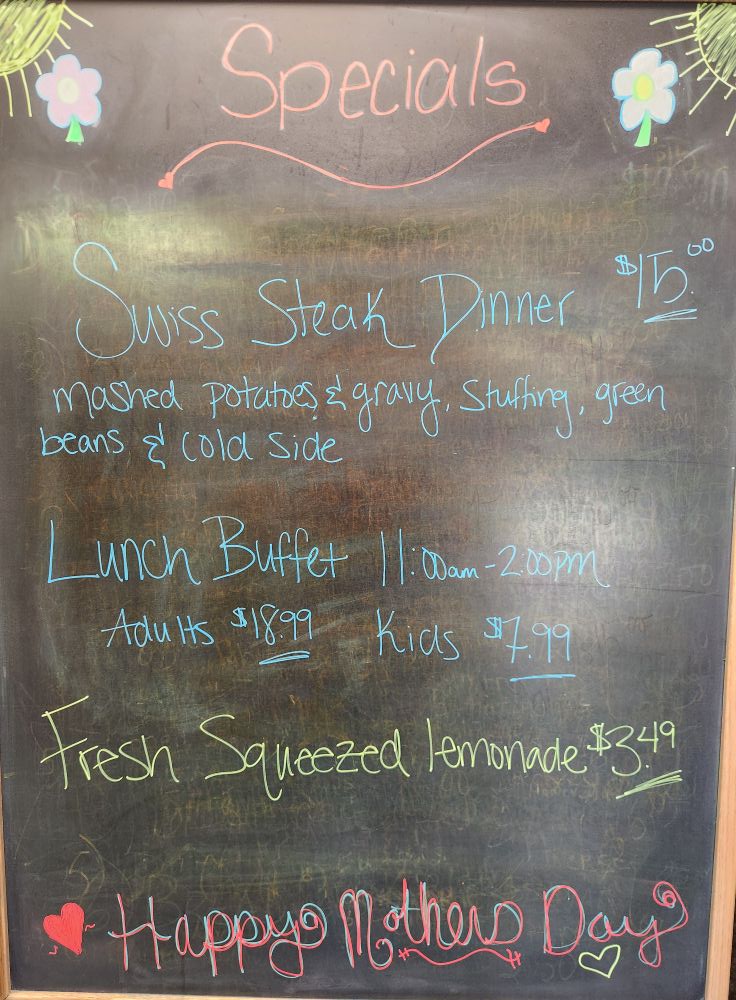 Specials
Swiss Steak Dinner $15.00
mashed potatoes & gravy, Stuffing, green
beans & cold side
Lunch Buffet 11:00am-2:00pm
Adults $18.99 Kids $7.99
Fresh Squeezed lemonade $3.49
Happy Mothers Day